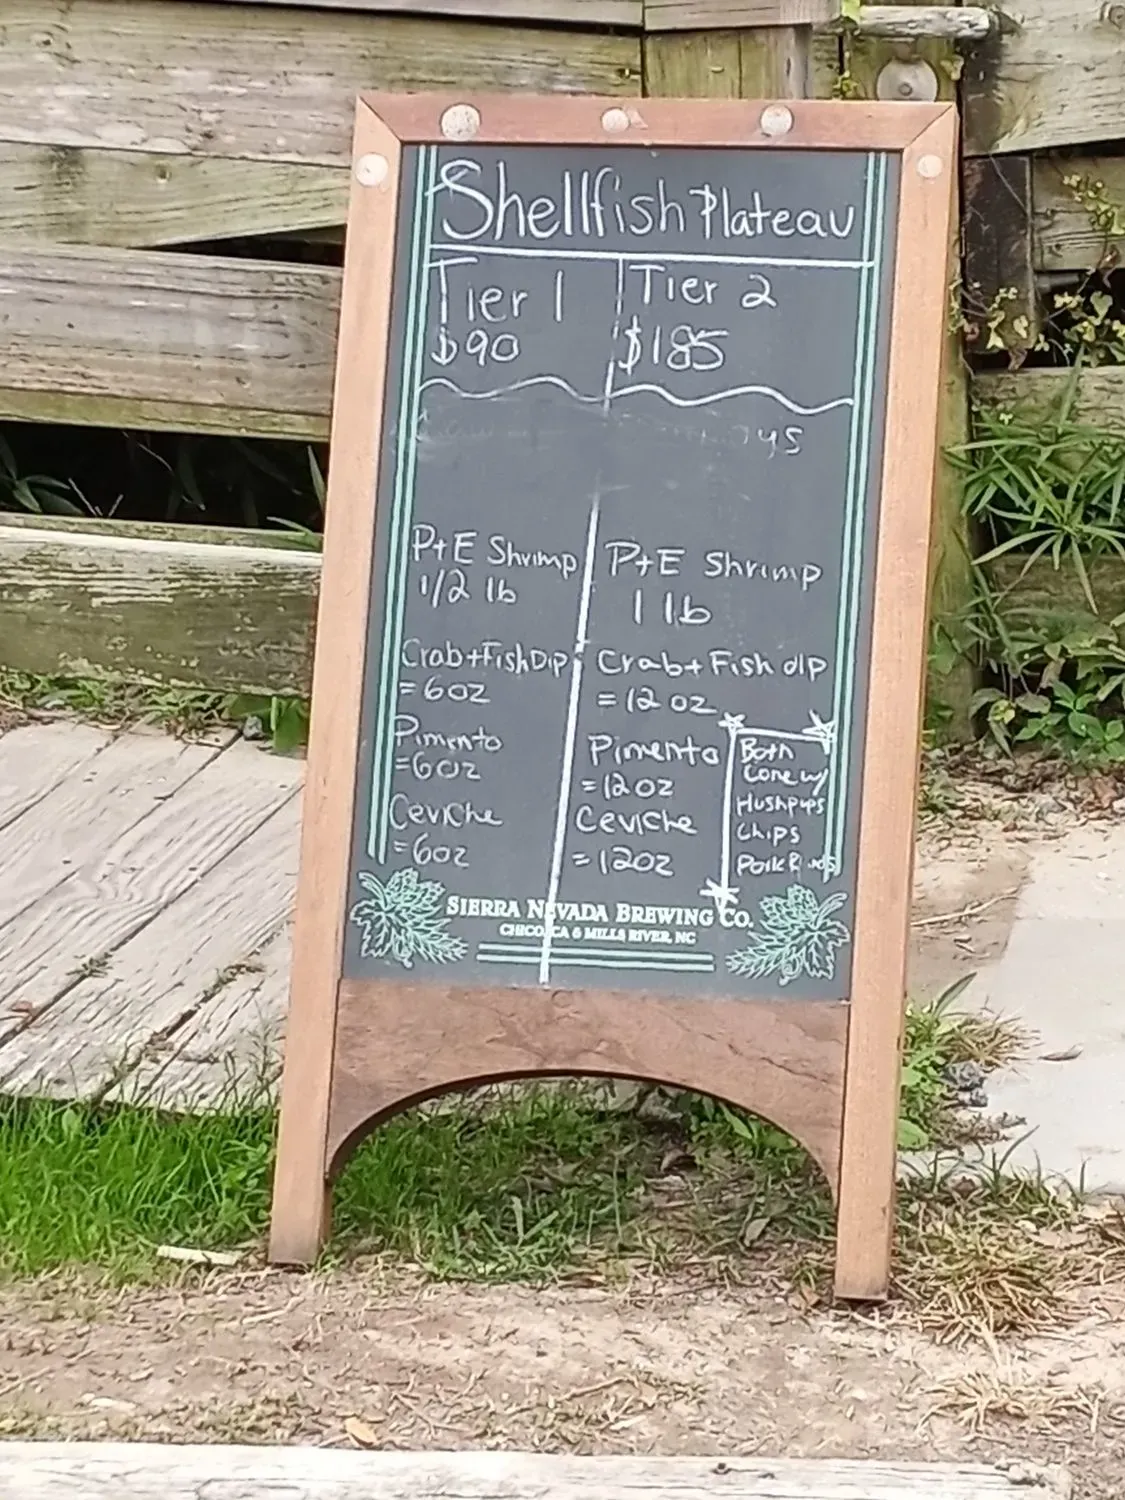 Shellfish Plateau
Tier 1
$90
Tier 2
$185
P+E Shrimp
1/2 lb
Crab+Fish Dip
=6oz
Pimento
=6oz
Ceviche
=6oz
P+E Shrimp
1 lb
Crab+Fish dip
=12oz
Pimento
=12oz
Ceviche
=12oz
Both
Come w/
Hushpups
Chips
Pork Rinds
SIERRA NEVADA BREWING CO.
CHICO, CA & MILLS RIVER, NC